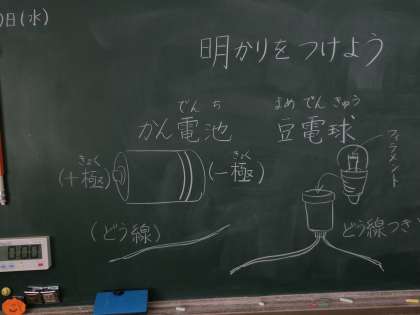 日(水)
明かりをつけよう
でんち
かん電池
まめでんきゅう
豆電球
フィラメント
きょく
(+極)
きょく
(−極)
(どう線)
どう線つき